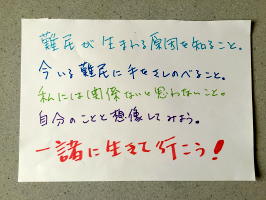 難民が生まれる原因を知ること。
今いる難民に手をさしのべること。
私には関係ないと思わないこと。
自分のことと想像してみよう。
一諸に生きて行こう!